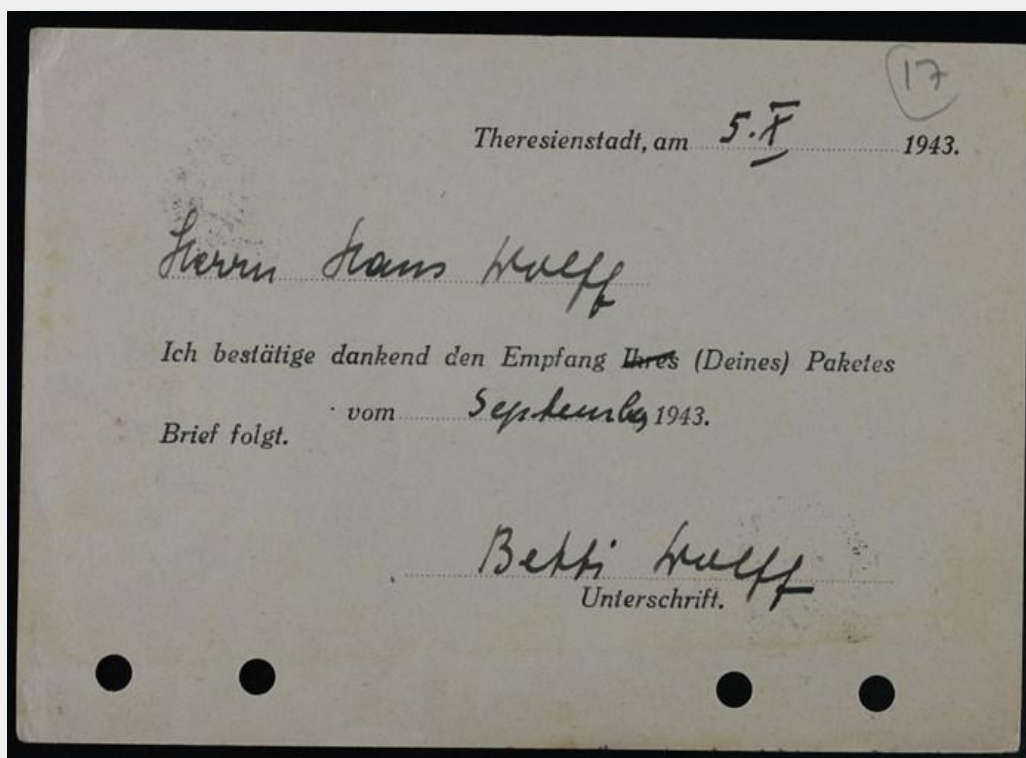 17
Theresienstadt, am 5.X 1943.
Herrn Hans Wolff
Ich bestätige dankend den Empfang Ihres (Deines) Paketes
vom September 1943.
Brief folgt.
Betti Wolff
Unterschrift.